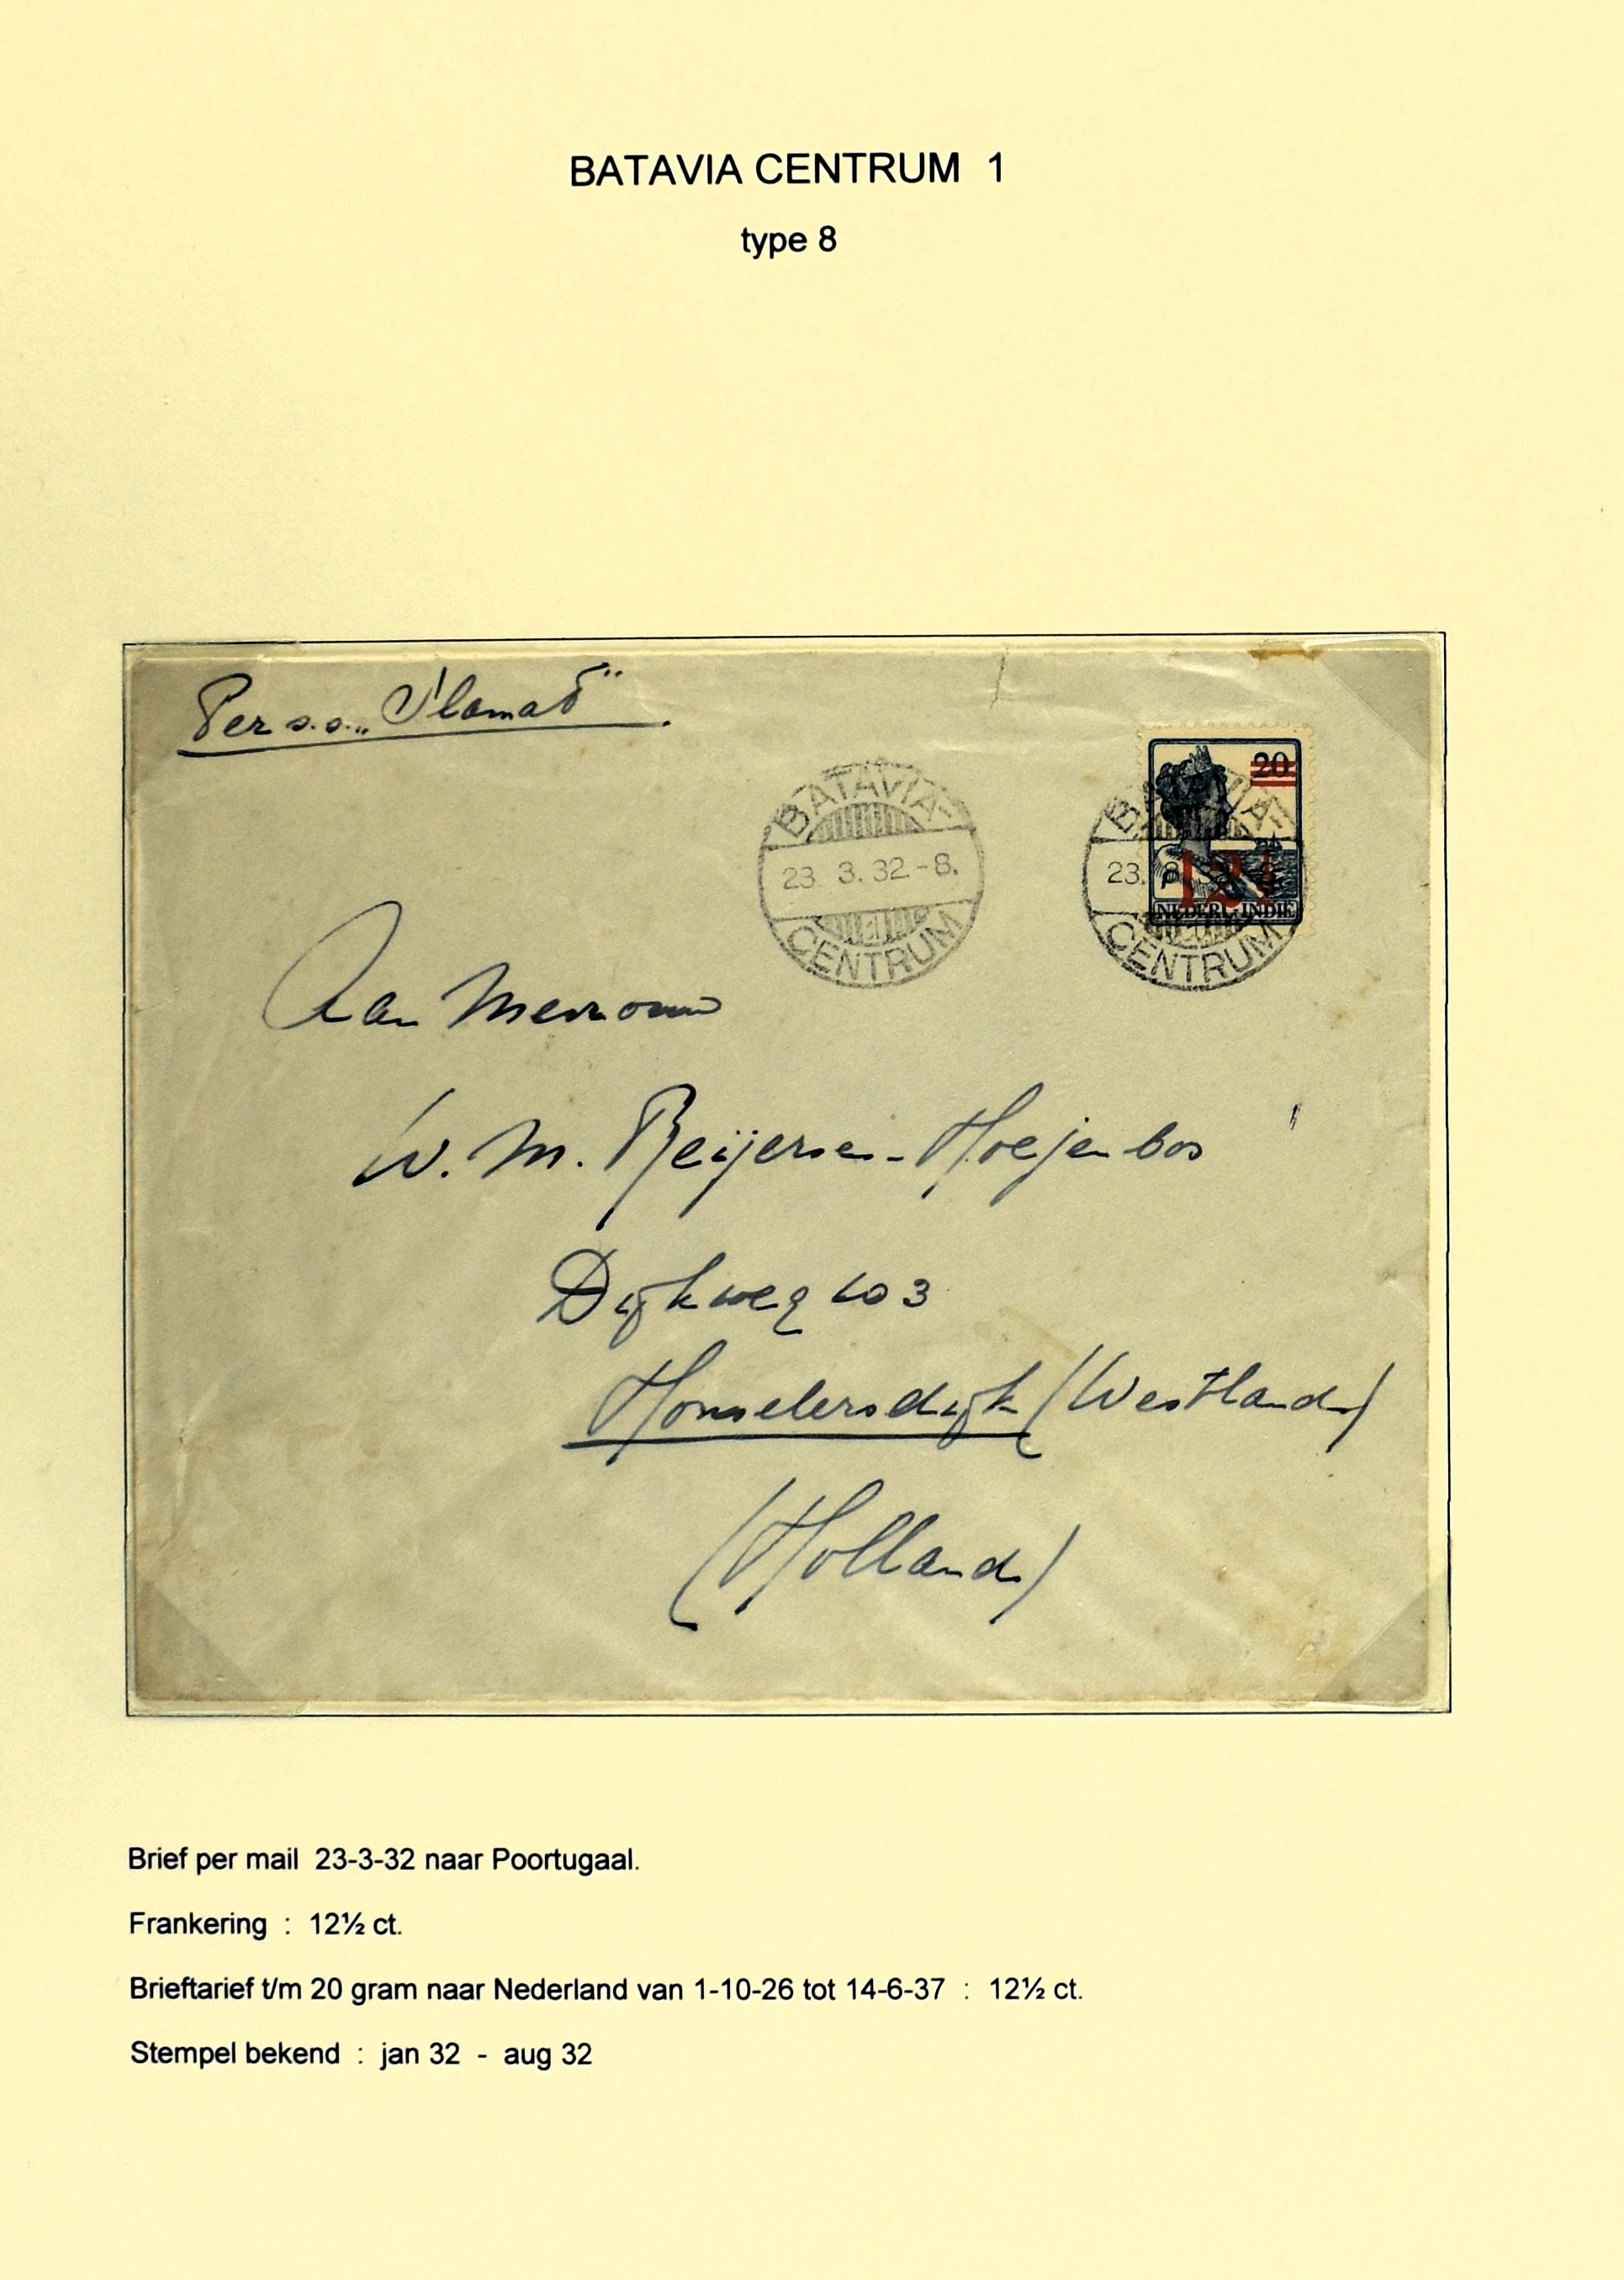 BATAVIA CENTRUM 1
type 8
Per s.s. „Slamat"
20
12½
NEDERL. INDIE
BATAVIA-
23. 3. 32 - 8.
CENTRUM
BATAVIA-
23.
CENTRUM
Aan Mevrouw
W. M. Reijerse-Hoejenbos
Dijkweg 103
Honselersdijk (Westland)
(Holland)
Brief per mail 23-3-32 naar Poortugaal.
Frankering : 12½ ct.
Brieftarief t/m 20 gram naar Nederland van 1-10-26 tot 14-6-37 : 12½ ct.
Stempel bekend : jan 32 - aug 32